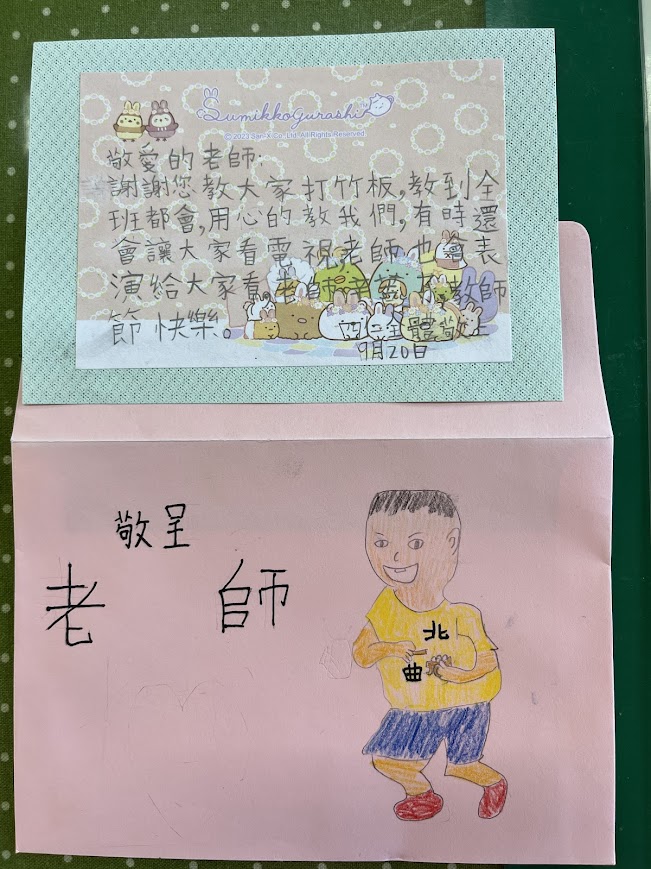 Sumikkogurashi
© 2023 San-X Co., Ltd. All Rights Reserved.
敬愛的老師:
謝謝您教大家打竹板,教到全
班都會,用心的教我們,有時還
會讓大家看電視老師也會表
演給大家看老師辛苦了教師
節快樂。
四三全體敬上
9月20日
敬呈
老師
北
曲